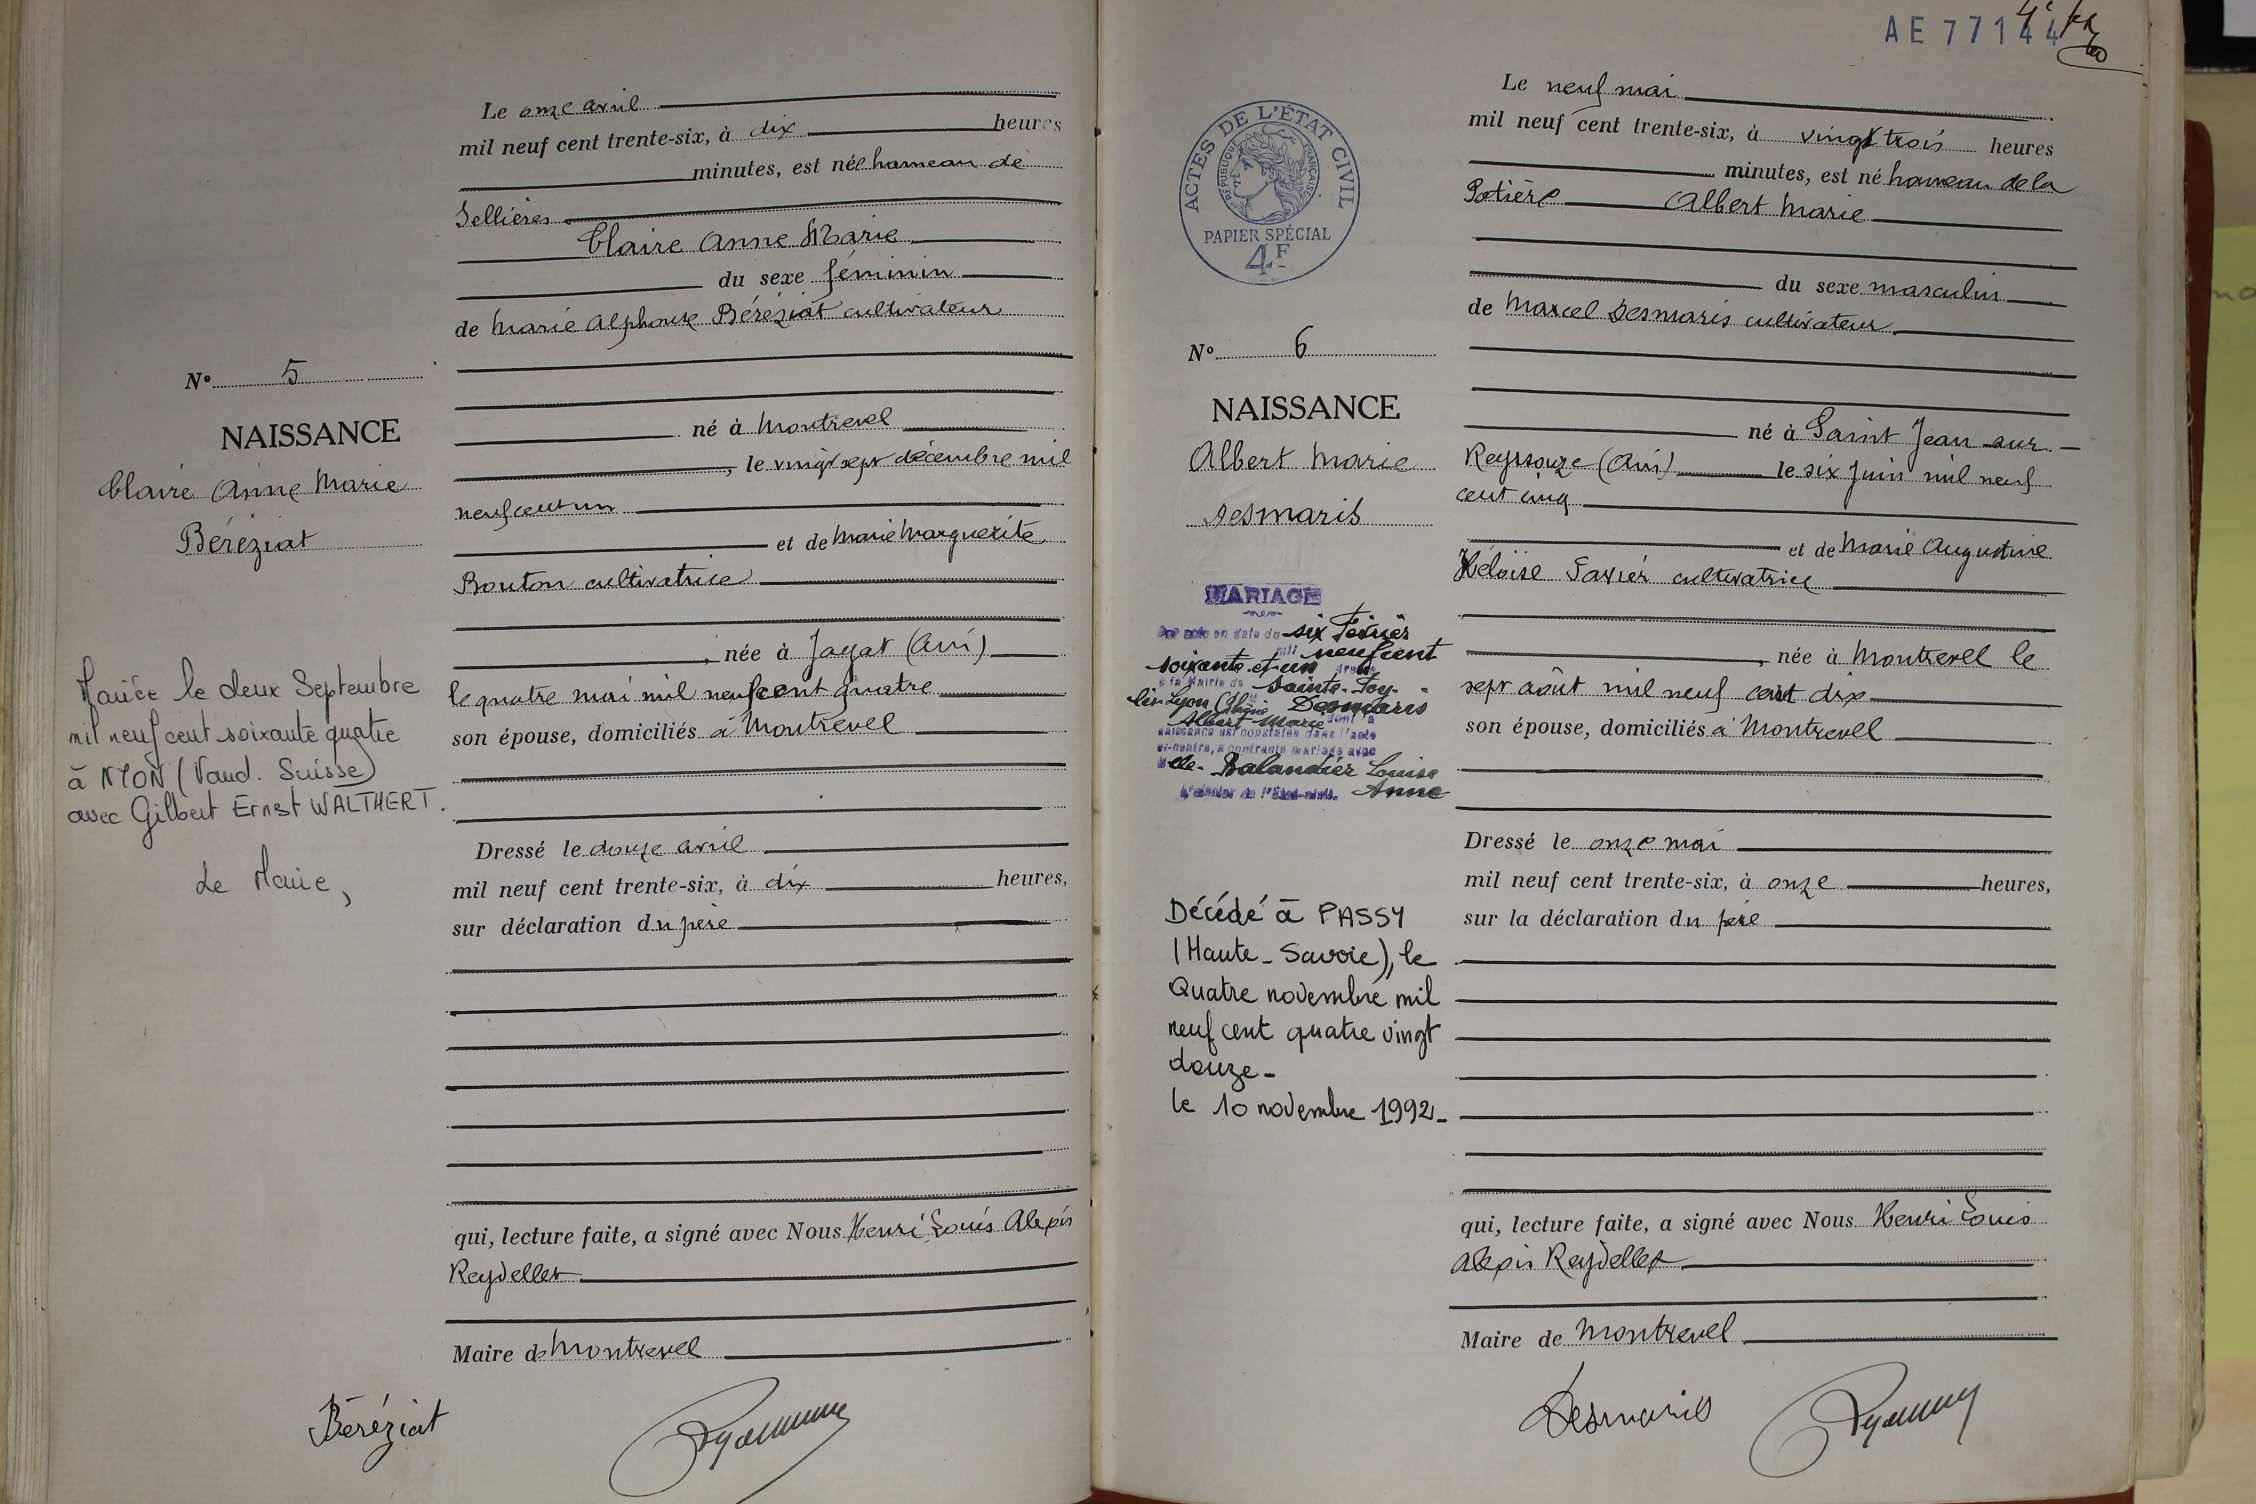 Le onze avril
mil neuf cent trente-six, à dix heures
minutes, est née hameau de
Sellières
Claire Anne Marie
du sexe féminin
de Marie Alphonse Béréziat cultivateur
né à Montrevel
, le vingt sept décembre mil
neuf cent un
et de Marie Marguerite
Bouton cultivatrice
, née à Jayat (Ain)
le quatre mai mil neuf cent quatre
son épouse, domiciliés à Montrevel
Dressé le douze avril
mil neuf cent trente-six, à dix heures,
sur déclaration du père
qui, lecture faite, a signé avec Nous Henri Louis Alexis
Reydellet
Maire de Montrevel
Béréziat
N° 5
NAISSANCE
Claire Anne Marie
Béréziat
Mariée le deux Septembre
mil neuf cent soixante quatre
à NYON (Vaud. Suisse)
avec Gilbert Ernst WALTHERT.
Le Maire,
AE 77144
ACTES DE L'ÉTAT CIVIL
RÉPUBLIQUE FRANÇAISE
PAPIER SPÉCIAL
4F
N° 6
NAISSANCE
Albert Marie
Desmaris
MARIAGE
Par acte en date du six Février
mil neuf cent
soixante et un dressé
à la Mairie de Sainte-Foy-
lès-Lyon (Rhône) Desmaris
Albert Marie dont la
naissance est constatée dans l'acte
ci-contre, a contracté mariage avec
Melle Balandier Louise
Anne
L'officier de l'État-civil.
Décédé à PASSY
(Haute-Savoie), le
Quatre novembre mil
neuf cent quatre vingt
douze-
le 10 novembre 1992-
Le neuf mai
mil neuf cent trente-six, à vingt trois heures
minutes, est né hameau de la
Potière Albert Marie
du sexe masculin
de Marcel Desmaris cultivateur
né à Saint Jean sur
Reyssouze (Ain) le six Juin mil neuf
cent cinq
et de Marie Augustine
Héloïse Favier cultivatrice
, née à Montrevel le
sept août mil neuf cent dix
son épouse, domiciliés à Montrevel
Dressé le onze mai
mil neuf cent trente-six, à onze heures,
sur la déclaration du père
qui, lecture faite, a signé avec Nous Henri Louis
Alexis Reydellet
Maire de Montrevel
Desmaris